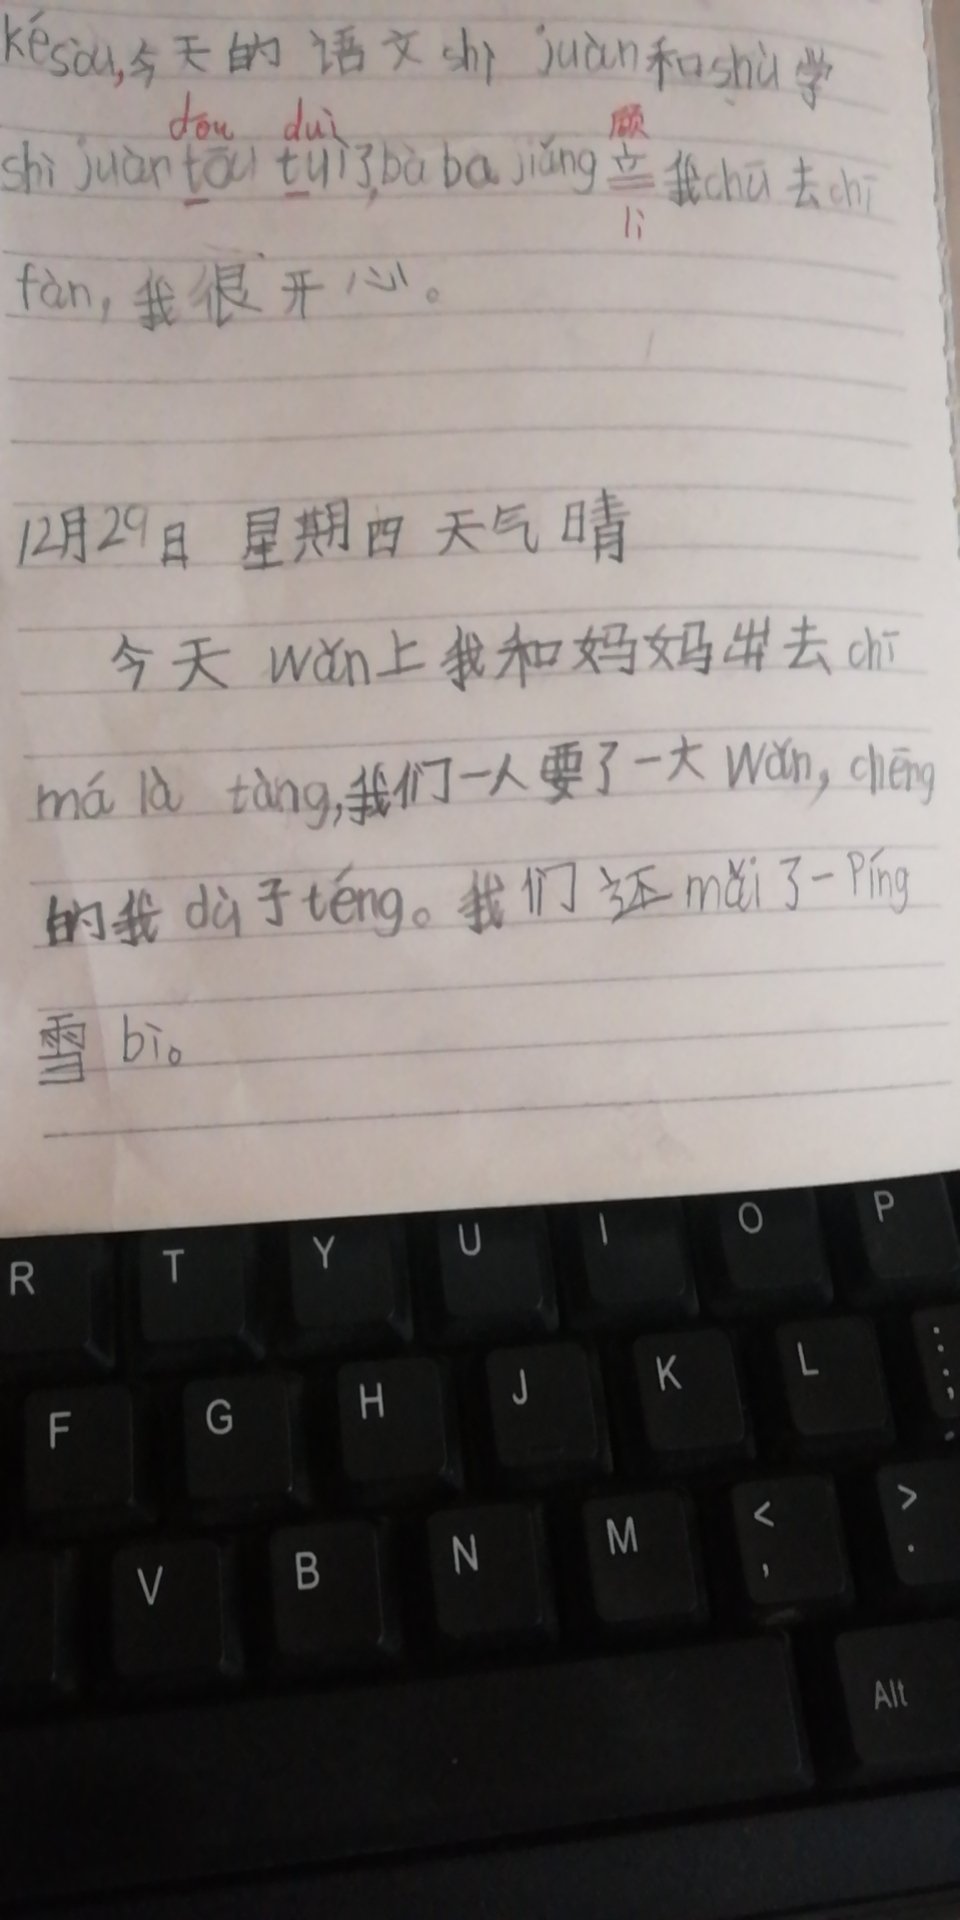 késòu,今天的语文shì juàn和shù学
dōu duì 励
shì juàn tōu tuì了,bà ba jiǎng立我chū去chī
lì
fàn,我很开心。
12月29日 星期四 天气晴
今天 wǎn上我和妈妈出去chī
má là tàng,我们一人要了一大wǎn,chēng
的我dù子téng。我们还mǎi了一Píng
雪 bì。
R T Y U I O P
F G H J K L ; :
V B N M < , > .
Alt